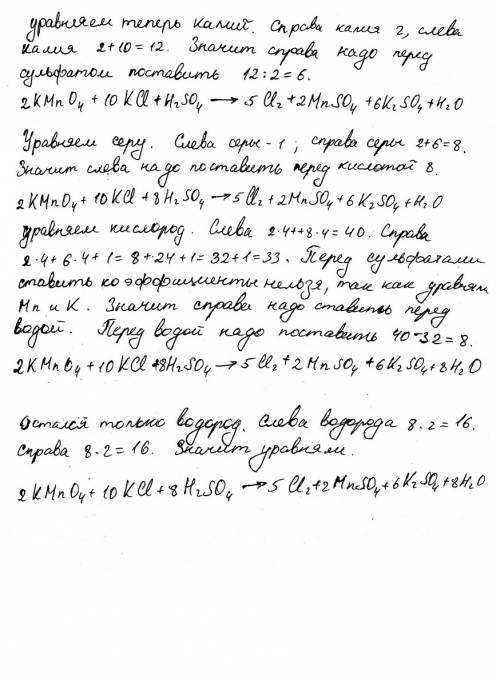 уравняем теперь калий. Справа калия 2, слева
калия 2+10=12. Значит справа надо перед
сульфатом поставить 12:2=6.
2KMnO₄ + 10 KCl + H₂SO₄ → 5 Cl₂ + 2MnSO₄ + 6K₂SO₄ + H₂O
Уравняем серу. Слева серы - 1, справа серы 2+6=8.
Значит слева надо поставить перед кислотой 8.
2KMnO₄ + 10 KCl + 8H₂SO₄ → 5 Cl₂ + 2MnSO₄ + 6K₂SO₄ + H₂O
уравняем кислород. Слева 2·4+8·4=40. Справа
2·4+6·4+1=8+24+1=32+1=33. Перед сульфатами
ставить коэффициенты нельзя, так как уравняли
Mn и K. Значит справа надо ставить перед
водой. Перед водой надо поставить 40-32=8.
2KMnO₄ + 10KCl + 8H₂SO₄ → 5Cl₂ + 2MnSO₄ + 6K₂SO₄ + 8H₂O
Остался только водород. Слева водорода 8·2=16.
Справа 8·2=16. Значит уравняли.
2KMnO₄ + 10KCl + 8H₂SO₄ → 5 Cl₂ + 2MnSO₄ + 6K₂SO₄ + 8H₂O